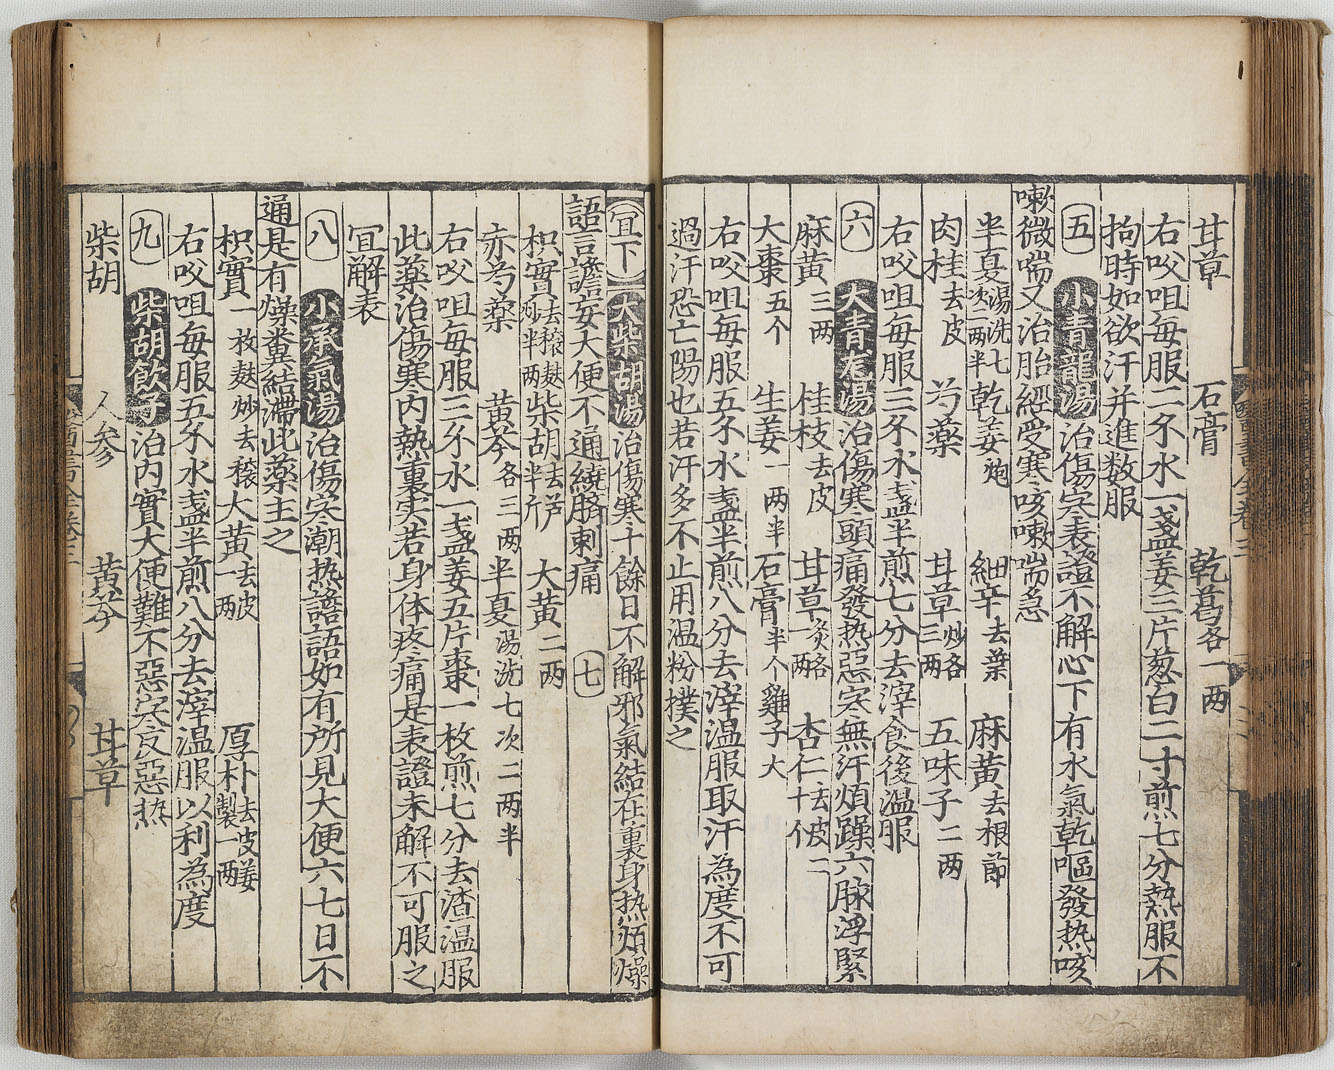 甘草 石膏 乾葛各一两
右㕮咀每服二�钱水一盞姜三片葱白二寸煎七分熱服不
拘時如欲汗并進数服
五 小青龍湯治傷寒表證不解心下有水氣乾嘔發热咳
嗽微喘又治胎經受寒咳嗽喘急
半夏湯洗七次二两半 乾姜炮 細辛去葉 麻黄去根節
肉桂去皮 芍藥 甘草炒各三两 五味子二两
右㕮咀每服三钱水盞半煎七分去滓食後温服
六 大青龙湯治傷寒頭痛發热惡寒無汗煩躁六脉浮緊
麻黄三两 桂枝去皮 甘草炙各一两 杏仁十伩去皮
大棗五个 生姜一两半 石膏半个雞子大
右㕮咀每服五钱水盞半煎八分去滓温服取汗為度不可
過汗恐亡陽也若汗多不止用温粉撲之
宜下 大柴胡湯治傷寒十餘日不解邪氣結在裏身热煩燥
語言譫妄大便不通繞臍刺痛 七
枳實去穰麸炒半两 柴胡去芦半斤 大黄二两
赤芍藥 黄芩各三两 半夏湯洗七次二两半
右㕮咀每服三钱水一盏姜五片棗一枚煎七分去渣温服
此藥治傷寒内熱裏实若身体疼痛是表證未解不可服之
宜解表
八 小承氣湯治傷寒潮热譫語如有所見大便六七日不
通是有燥糞結滯此藥主之
枳實一枚麸炒去穰 大黄去皮一两 厚朴去皮姜製一两
右㕮咀每服五钱水盞半煎八分去滓温服以利為度
九 柴胡飲子治内實大便難不惡寒反惡热
柴胡 人參 黄芩 甘草